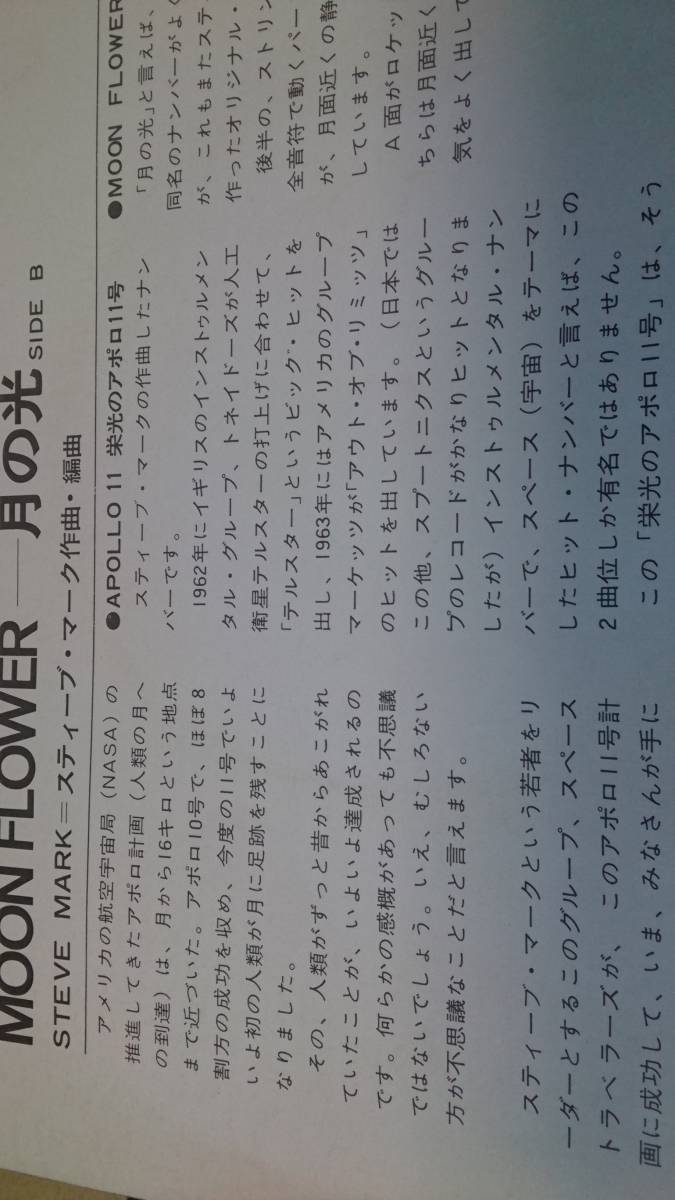 MOON FLOWER——月の光 SIDE B
STEVE MARK=スティーブ・マーク作曲・編曲
アメリカの航空宇宙局（NASA）の
推進してきたアポロ計画（人類の月へ
の到達）は、月から16キロという地点
まで近づいた。アポロ10号で、ほぼ8
割方の成功を収め、今度の11号でいよ
いよ初の人類が月に足跡を残すことに
なりました。
その、人類がずっと昔からあこがれ
ていたことが、いよいよ達成されるの
です。何らかの感概があっても不思議
ではないでしょう。いえ、むしろない
方が不思議なことだと言えます。
スティーブ・マークという若者をリ
ーダーとするこのグループ、スペース
トラベラーズが、このアポロ11号計
画に成功して、いま、みなさんが手に
●APOLLO 11 栄光のアポロ11号
スティーブ・マークの作曲したナン
バーです。
1962年にイギリスのインストゥルメン
タル・グループ、トネイドーズが人工
衛星テルスターの打上げに合わせて、
「テルスター」というビッグ・ヒットを
出し、1963年にはアメリカのグループ
マーケッツが「アウト・オブ・リミッツ」
のヒットを出しています。（日本では
この他、スプートニクスというグルー
プのレコードがかなりヒットとなりま
したが）インストゥルメンタル・ナン
バーで、スペース（宇宙）をテーマに
したヒット・ナンバーと言えば、この
2曲位しか有名ではありません。
この「栄光のアポロ11号」は、そう
●MOON FLOWER
「月の光」と言えば、
同名のナンバーがよく
が、これもまたステ
作ったオリジナル・
後半の、ストリン
全音符で動くパー
が、月面近くの静
しています。
A面がロケッ
ちらは月面近く
気をよく出して